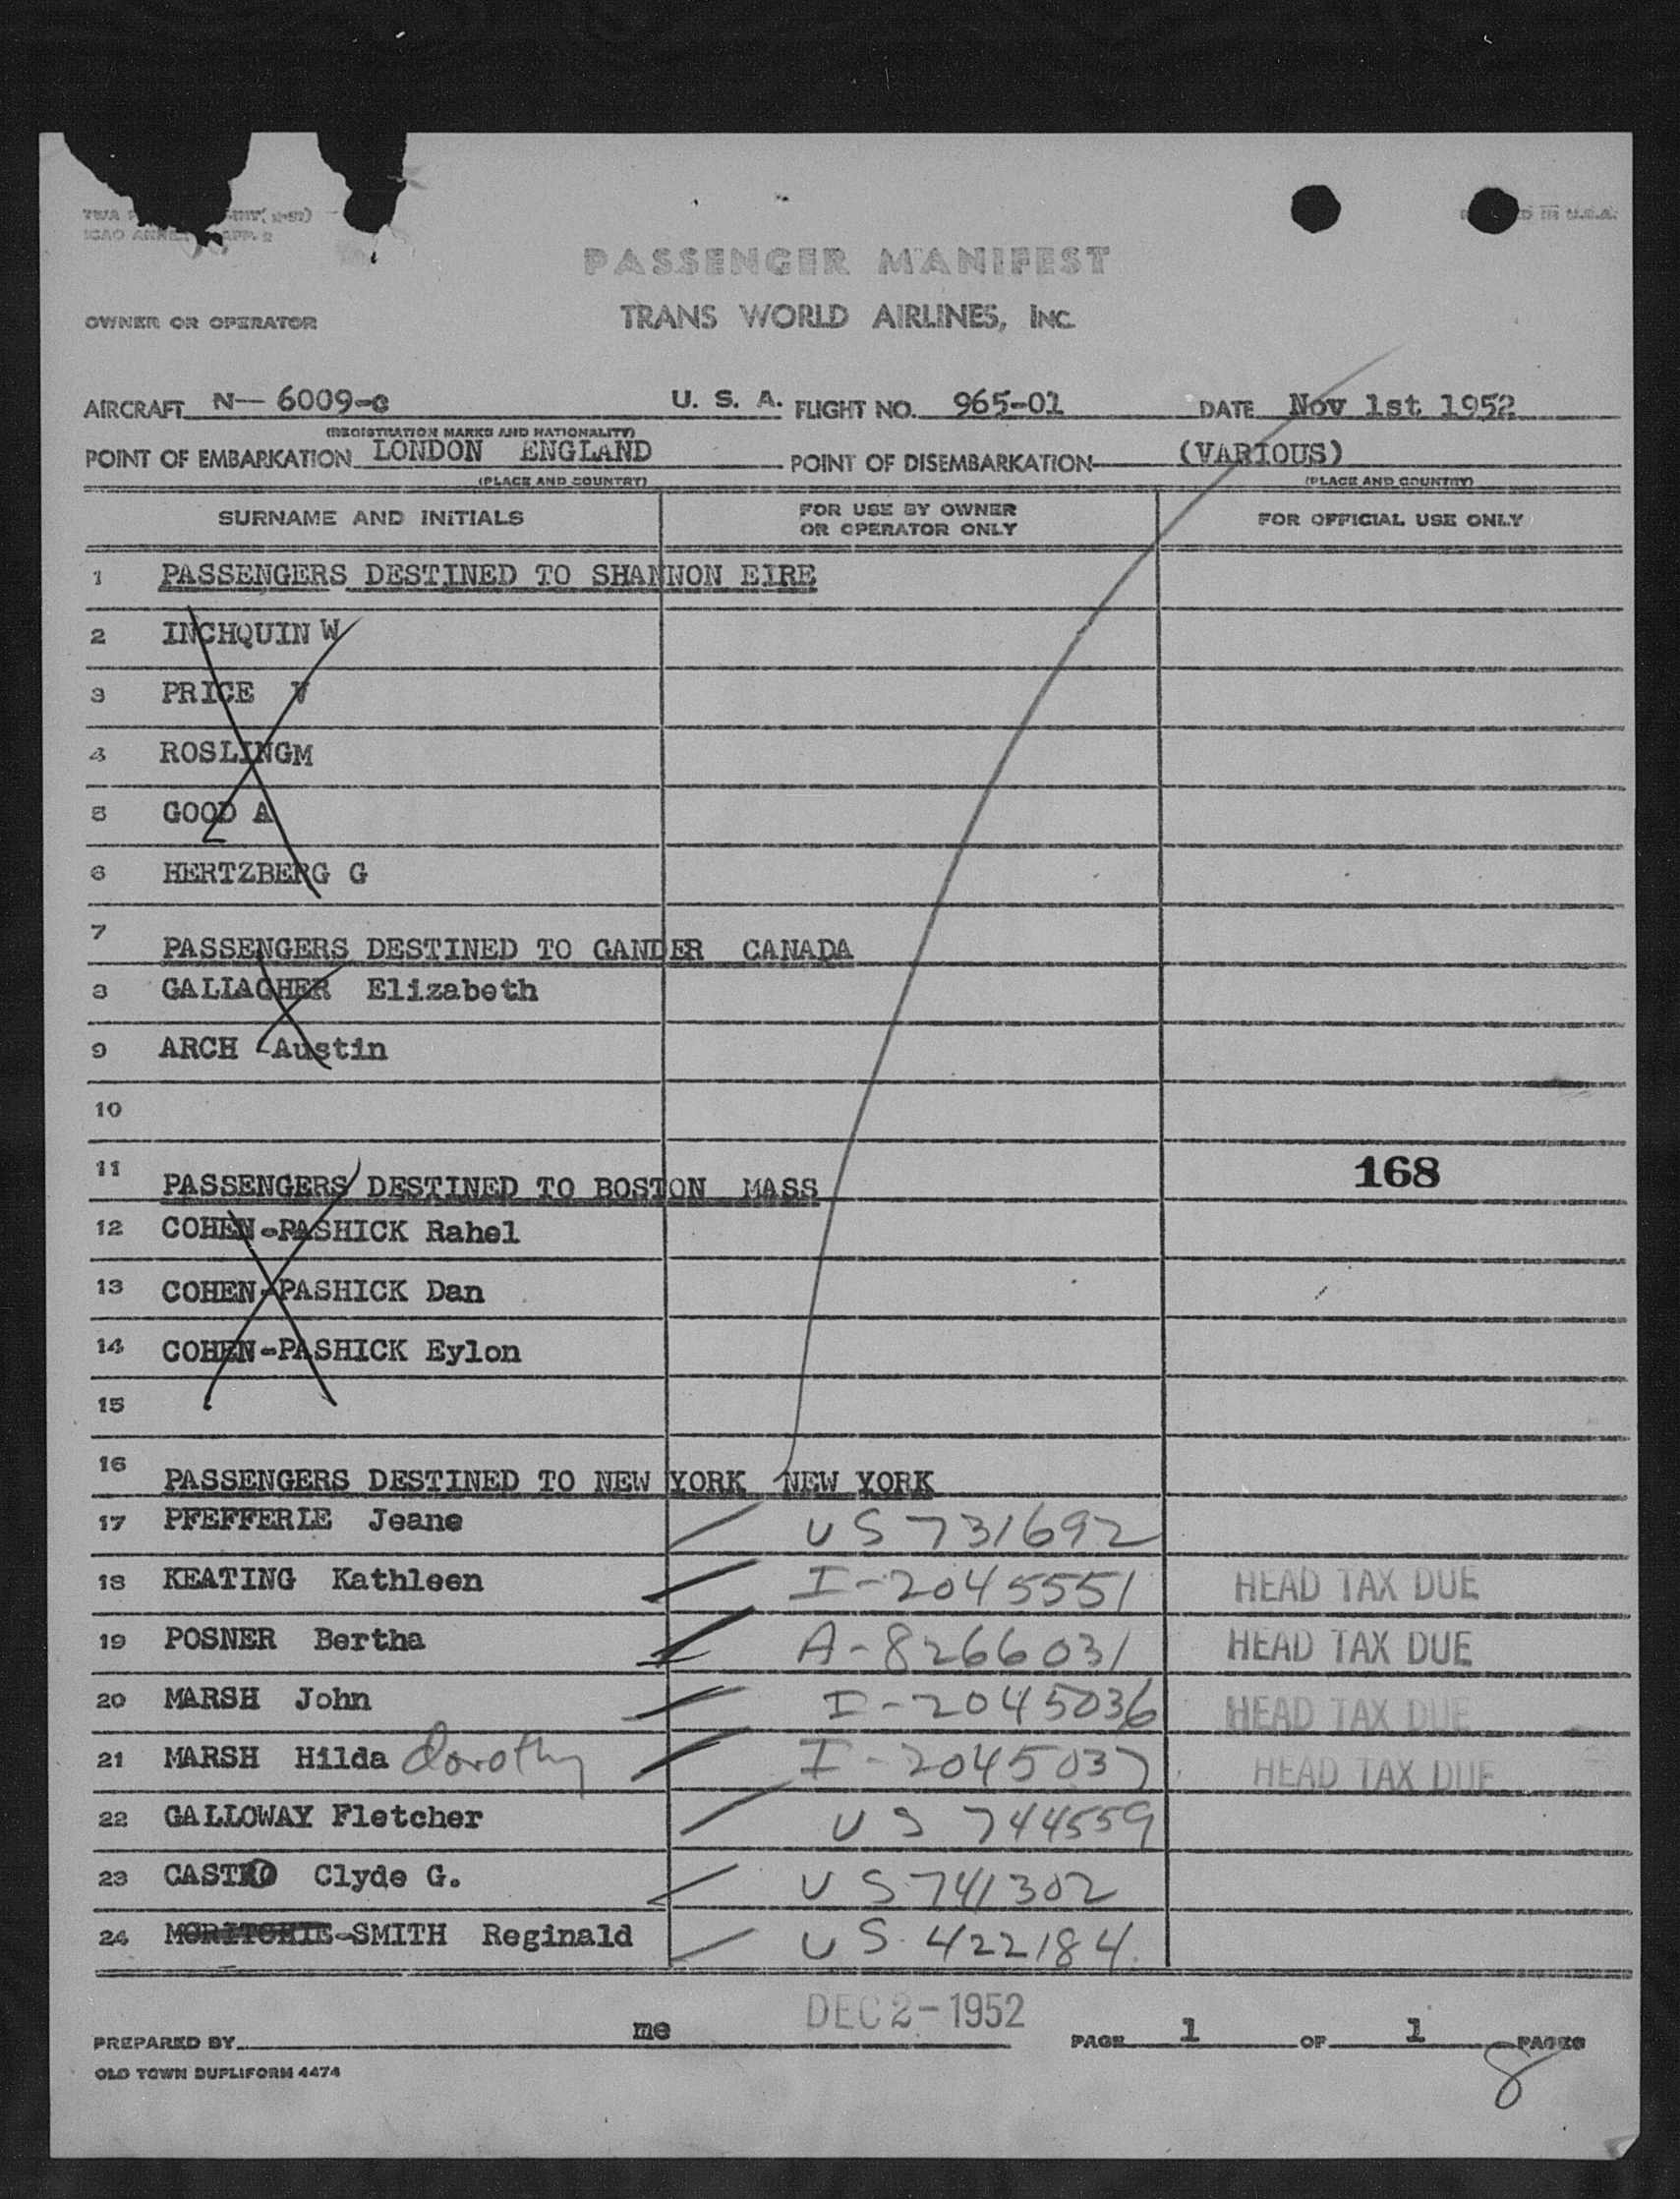 TWA
ICAO ANNEX APP. 2
IN U.S.A.
PASSENGER MANIFEST
OWNER OR OPERATOR TRANS WORLD AIRLINES, INC.
AIRCRAFT N- 6009-C U. S. A. FLIGHT NO. 965-01 DATE Nov 1st 1952
(REGISTRATION MARKS AND NATIONALITY)
POINT OF EMBARKATION LONDON ENGLAND POINT OF DISEMBARKATION (VARIOUS)
(PLACE AND COUNTRY) (PLACE AND COUNTRY)
SURNAME AND INITIALS FOR USE BY OWNER OR OPERATOR ONLY FOR OFFICIAL USE ONLY
1 PASSENGERS DESTINED TO SHANNON EIRE
2 INCHQUIN W
3 PRICE V
4 ROSLINGM
5 GOOD A
6 HERTZBERG G
7 PASSENGERS DESTINED TO GANDER CANADA
8 GALLAGHER Elizabeth
9 ARCH Austin
10
11 PASSENGERS DESTINED TO BOSTON MASS 168
12 COHEN-PASHICK Rahel
13 COHEN-PASHICK Dan
14 COHEN-PASHICK Eylon
15
16 PASSENGERS DESTINED TO NEW YORK NEW YORK
17 PFEFFERLE Jeane US 731692
18 KEATING Kathleen I-2045551 HEAD TAX DUE
19 POSNER Bertha A-8266031 HEAD TAX DUE
20 MARSH John I-2045036 HEAD TAX DUE
21 MARSH Hilda dorothy I-2045037 HEAD TAX DUE
22 GALLOWAY Fletcher US 744559
23 CASTRO Clyde G. US 741302
24 MORITCHIE-SMITH Reginald US 422184
DEC 2-1952
PREPARED BY me PAGE 1 OF 1 PAGES
OLD TOWN DUPLIFORM 4474
8